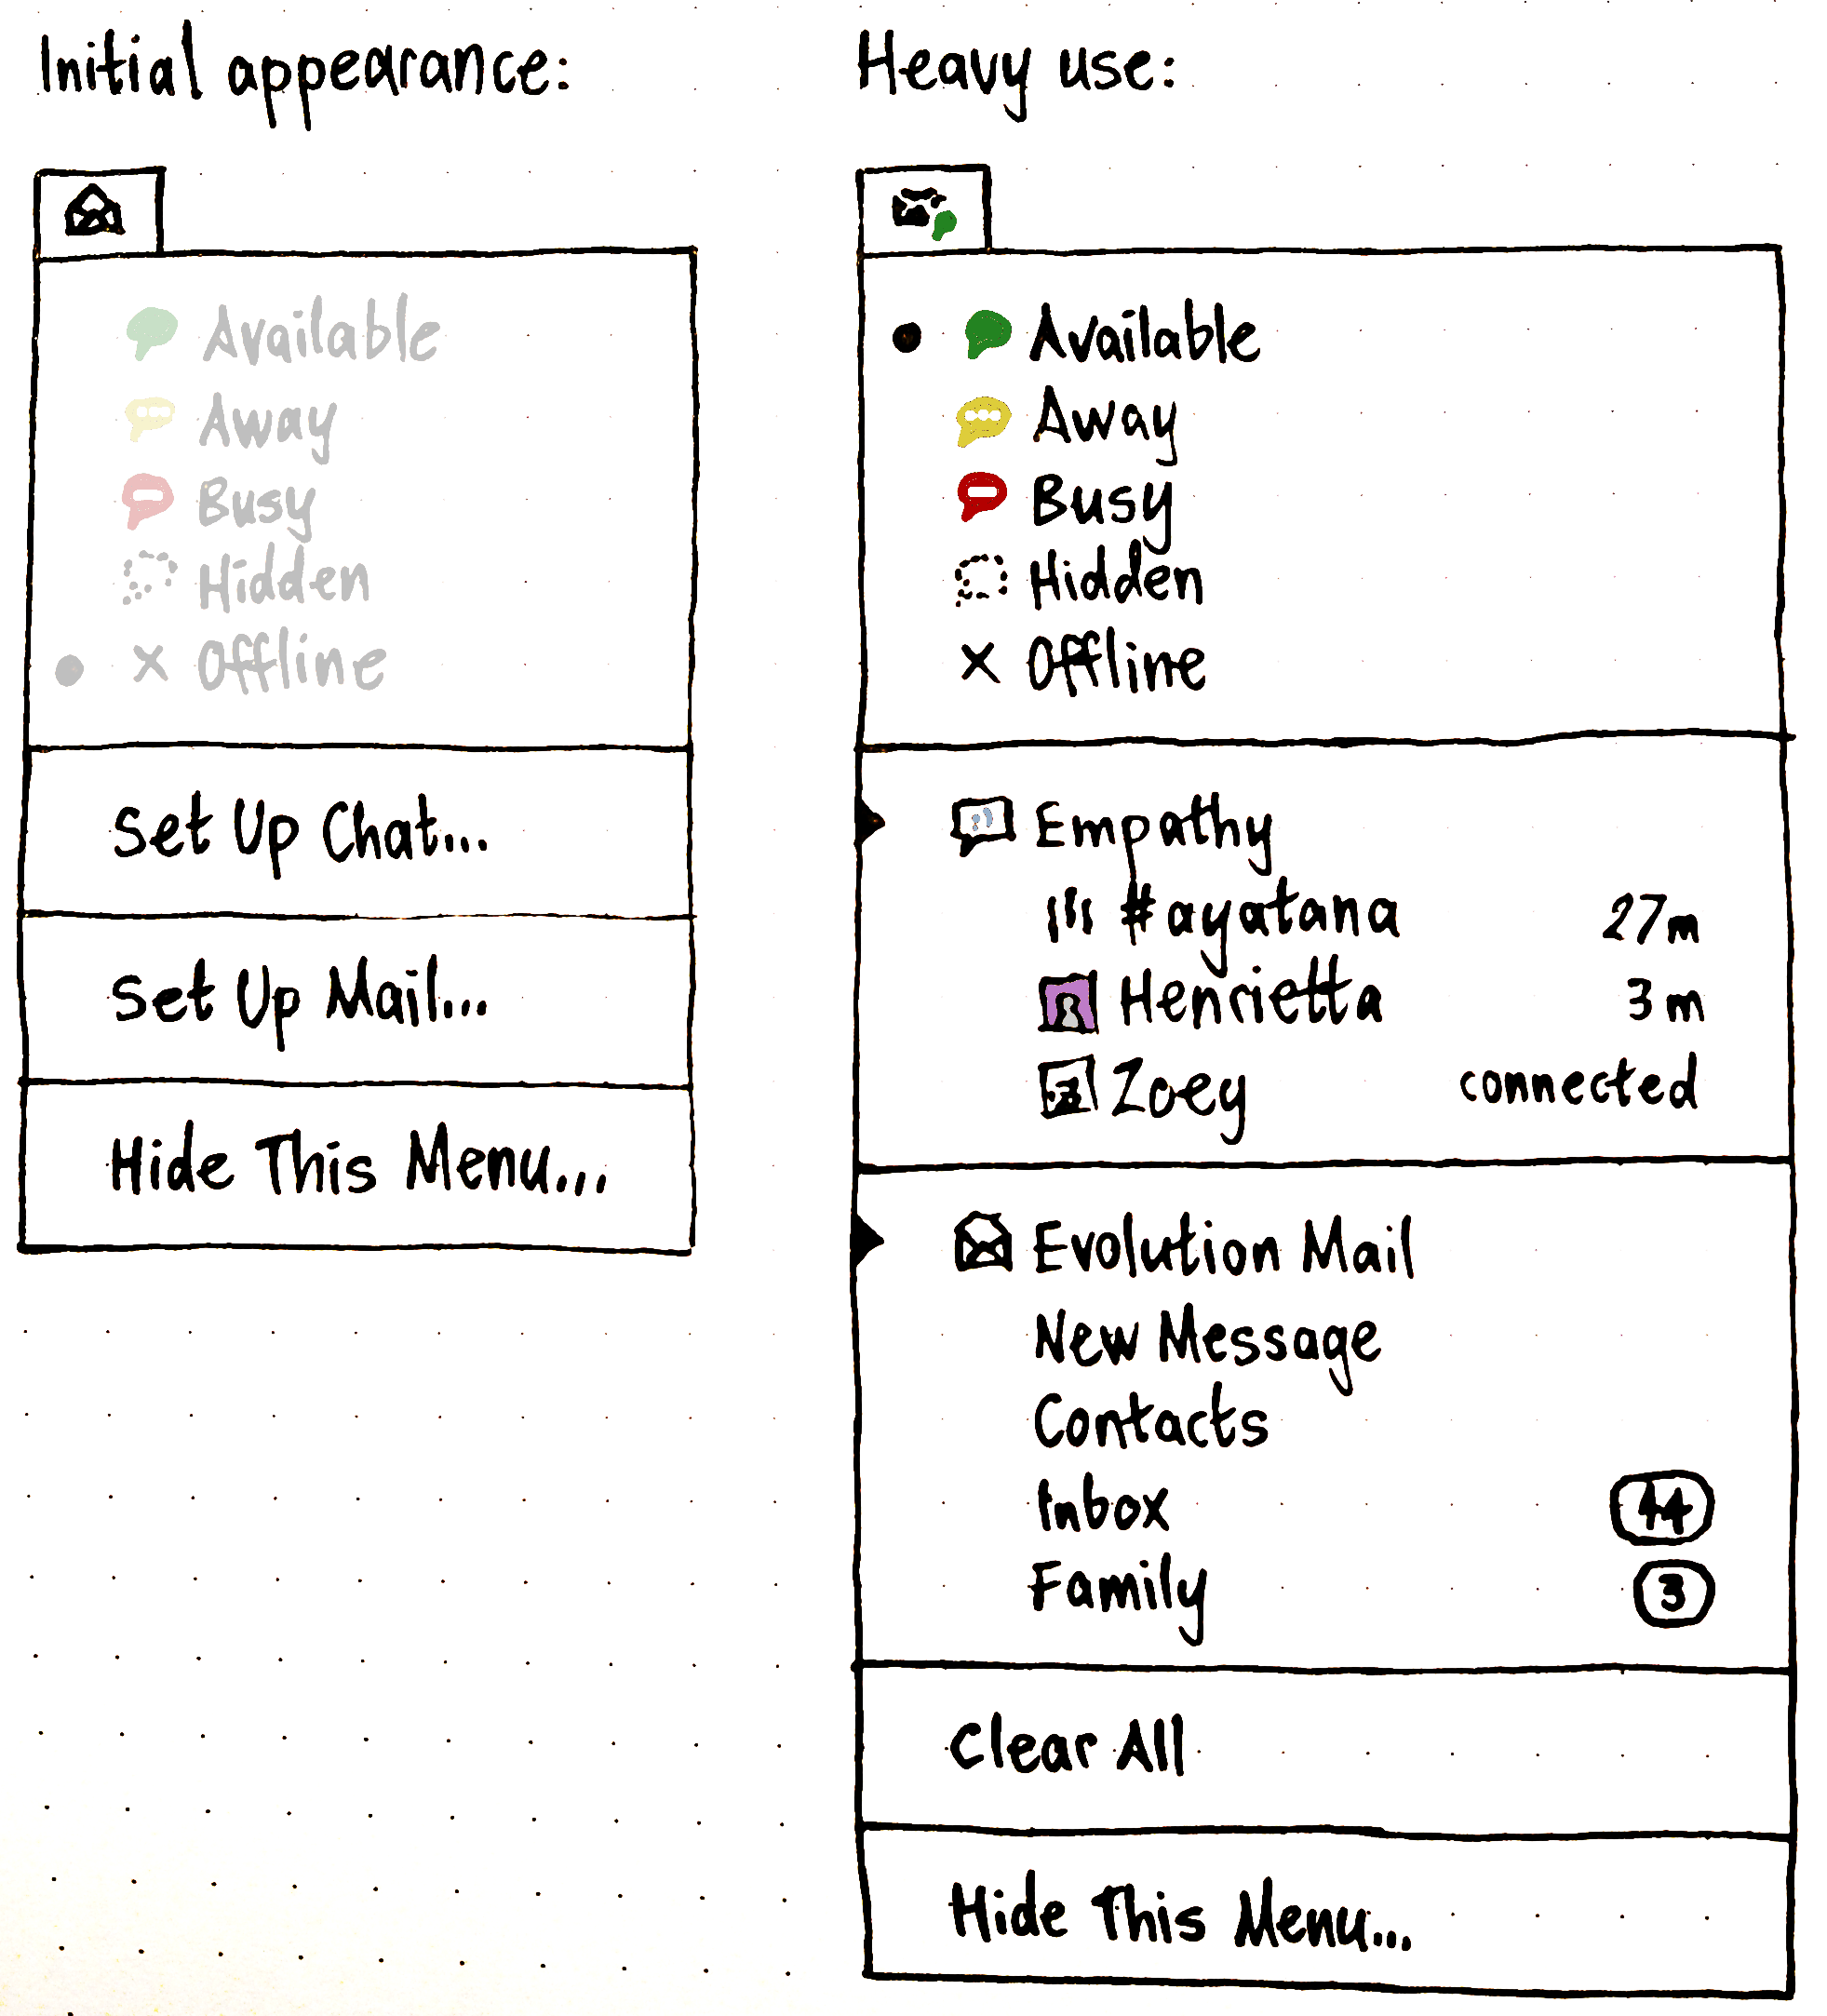 Initial appearance:
Available
Away
Busy
Hidden
Offline
Set Up Chat...
Set Up Mail...
Hide This Menu...
Heavy use:
Available
Away
Busy
Hidden
Offline
Empathy
#ayatana 27m
Henrietta 3m
Zoey connected
Evolution Mail
New Message
Contacts
Inbox 44
Family 3
Clear All
Hide This Menu...